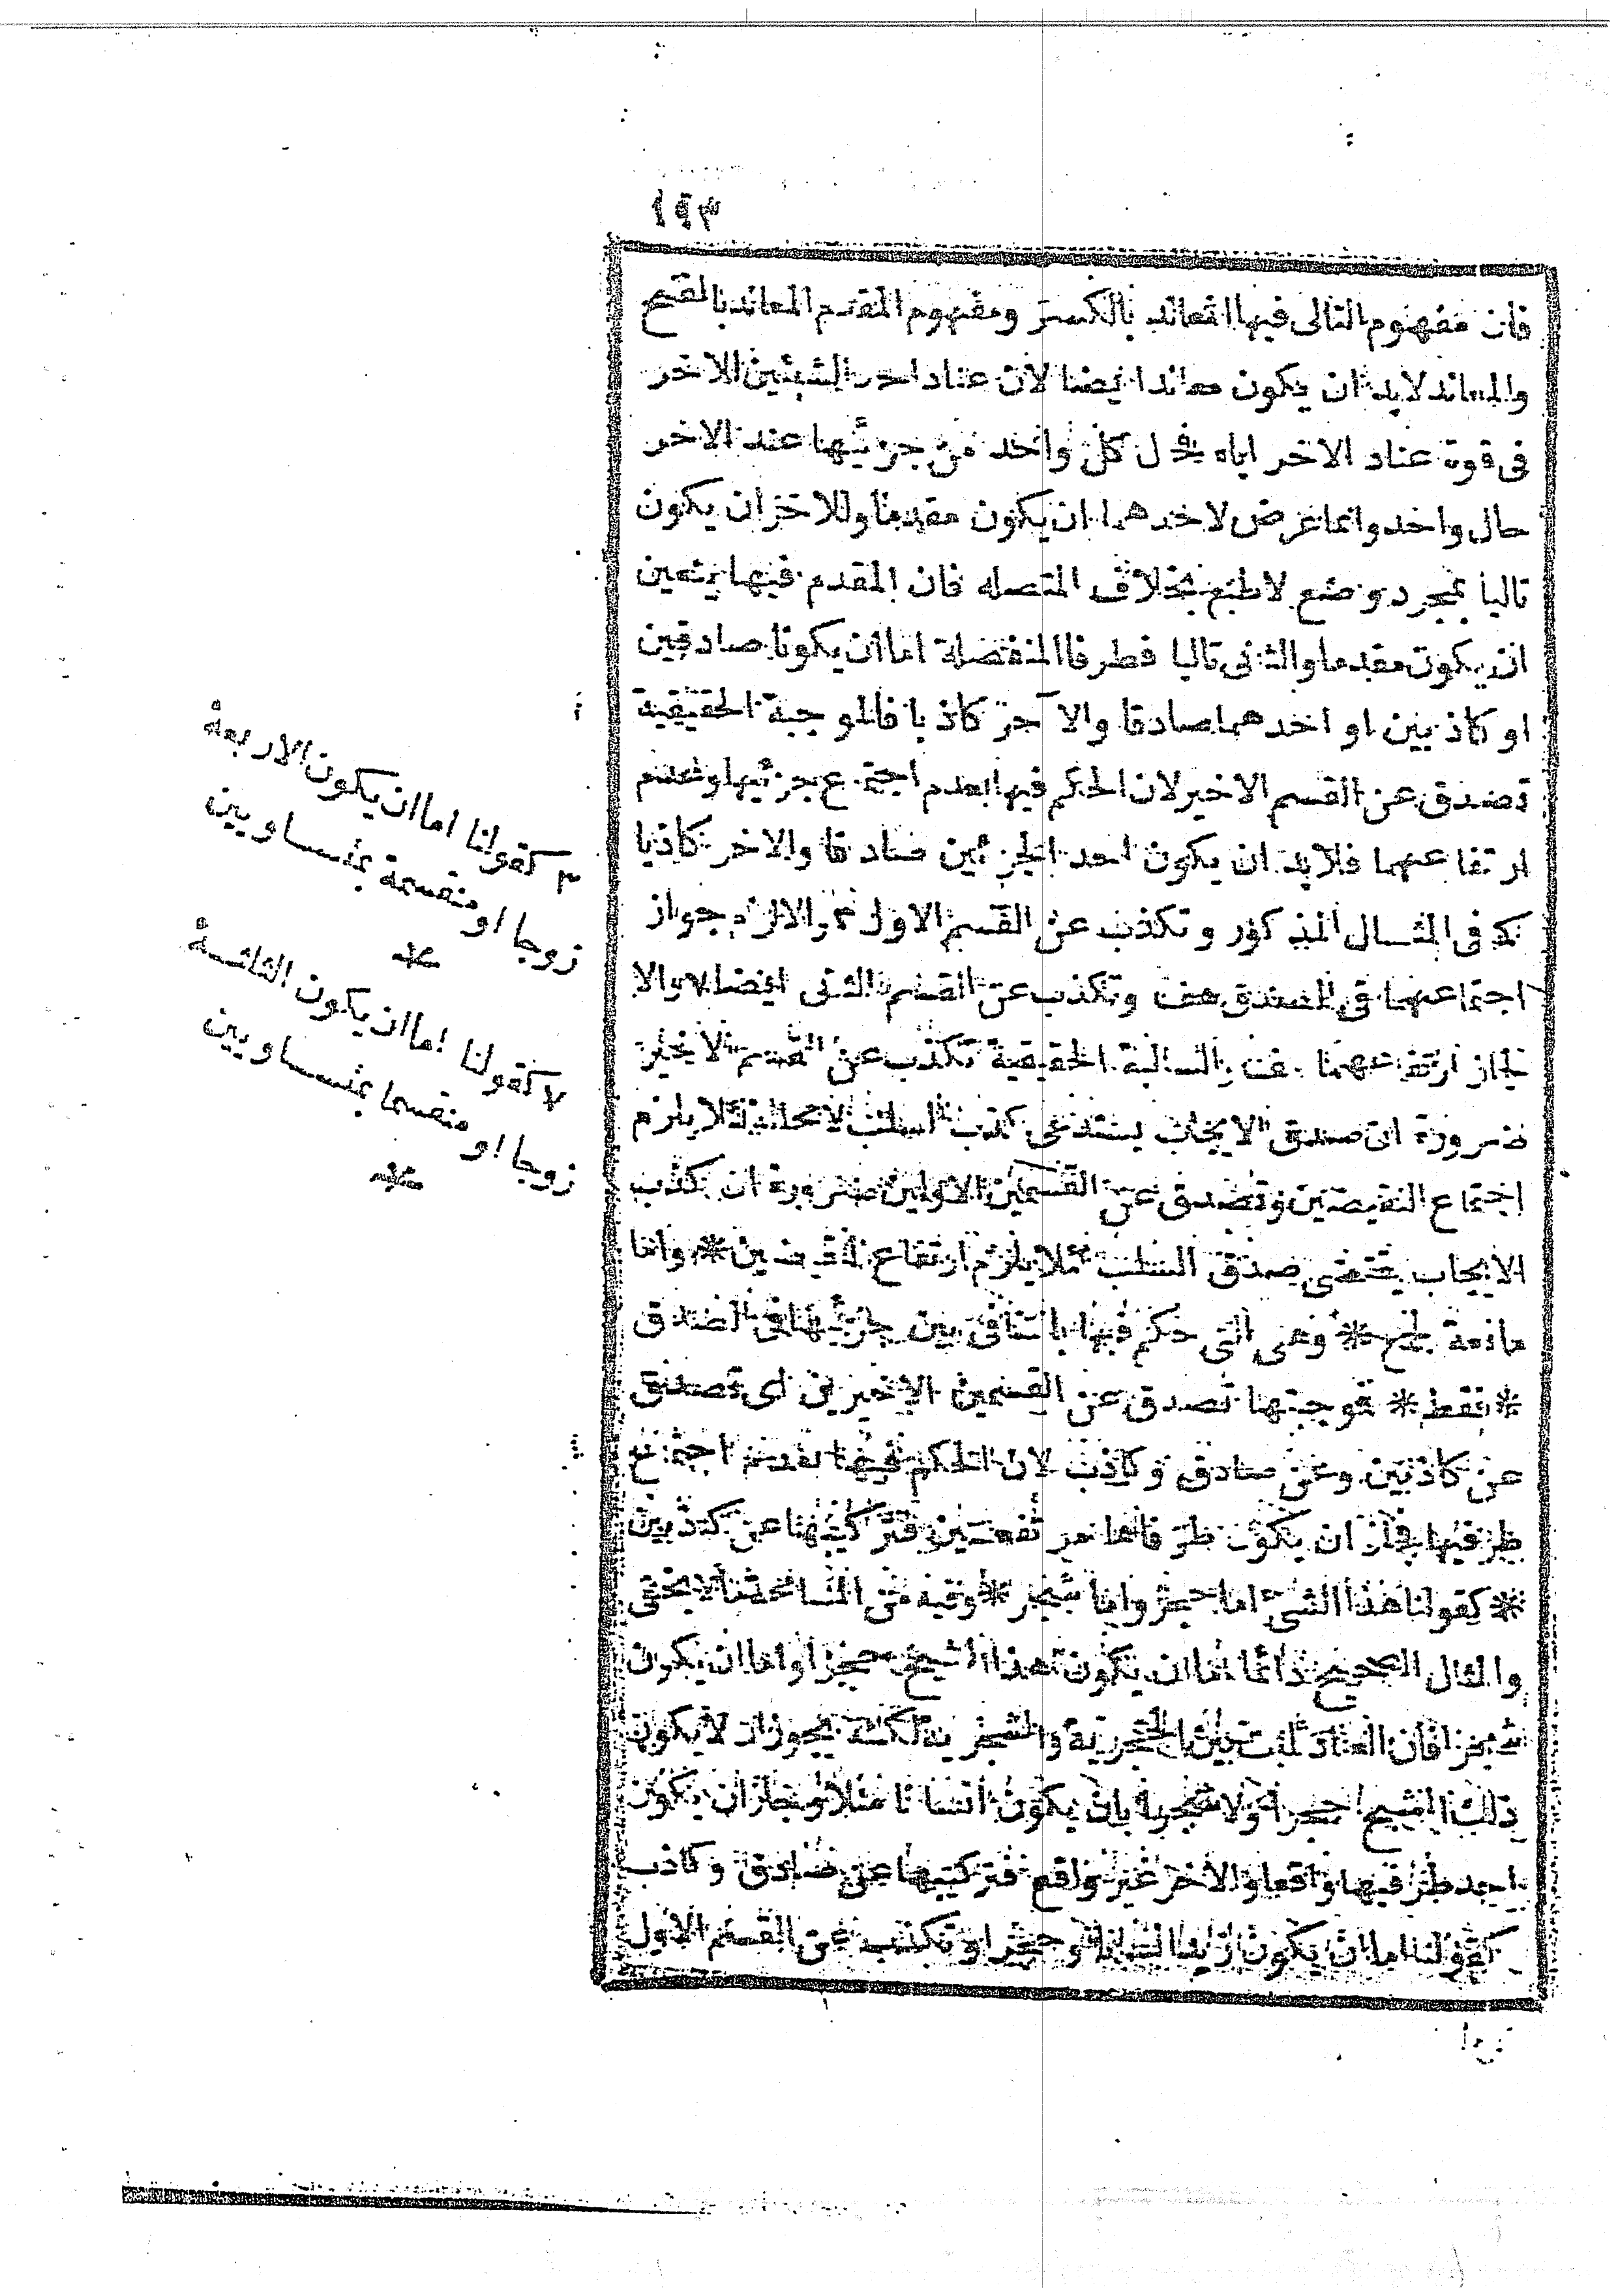 ١٩٣
فان مفهوم التالى فيها المعاند بالكسر ومفهوم المقدم المعاند بالفتح
والمعاند لابد ان يكون معاندا ايضا لان عناد احد الشيئين للاخر
فى قوة عناد الاخر اياه فحال كل واحد من جزئيها عند الاخر
حال واحد وانما عرض لاحدهما ان يكون مقدما وللاخر ان يكون
تاليا بمجرد وضع لا طبع بخلاف المتصلة فان المقدم فيها يتعين
ان يكون مقدما والثانى تاليا فطرفا المنفصلة اما ان يكونا صادقين
او كاذبين او احدهما صادقا والآخر كاذبا فالموجبة الحقيقية
تصدق عن القسم الاخير لان الحكم فيها بعدم اجتماع جزئيها وعدم
ارتفاعهما فلابد ان يكون احد الجزئين صادقا والاخر كاذبا
كما فى المثال المذكور وتكذب عن القسم الاول ٣ والا لزم جواز
اجتماعهما فى الصدق هف وتكذب عن القسم الثانى ايضا ٧ والا
لجاز ارتفاعهما هف والسالبة الحقيقية تكذب عن القسم الاخير
ضرورة ان صدق الايجاب يستدعى كذب السلب لا محالة لئلا يلزم
اجتماع النقيضين وتصدق عن القسمين الاولين ضرورة ان كذب
الايجاب يقتضى صدق السلب لئلا يلزم ارتفاع النقيضين * واما
مانعة الجمع * وهى التى حكم فيها بالتنافى بين جزئيها فى الصدق
* فقط * فموجبتها تصدق عن القسمين الاخيرين اى تصدق
عن كاذبين وعن صادق وكاذب لان الحكم فيها بعدم اجتماع
طرفيها فجاز ان يكون طرفاها مرتفعين فتركيبها عن كاذبين
* كقولنا هذا الشئ اما حجر واما شجر * وفيه من المسامحة ما لا يخفى
والمثال الصحيح دائما اما ان يكون هذا الشبح حجرا واما ان يكون
شجرا فان العناد ثابت بين الحجرية والشجرية لكنه يجوز ان لا يكون
ذلك الشبح حجرا ولا شجرا بان يكون انسانا مثلا وجاز ان يكون
احد طرفيها واقعا والاخر غير واقع فتركيبها عن صادق وكاذب
كقولنا اما ان يكون زيد انسانا او حجرا وتكذب عن القسم الاول
٣ كقولنا اما ان يكون الاربعة
زوجا او منقسمة بمتساويين
٧ كقولنا اما ان يكون الثلثة
زوجا او منقسما بمتساويين